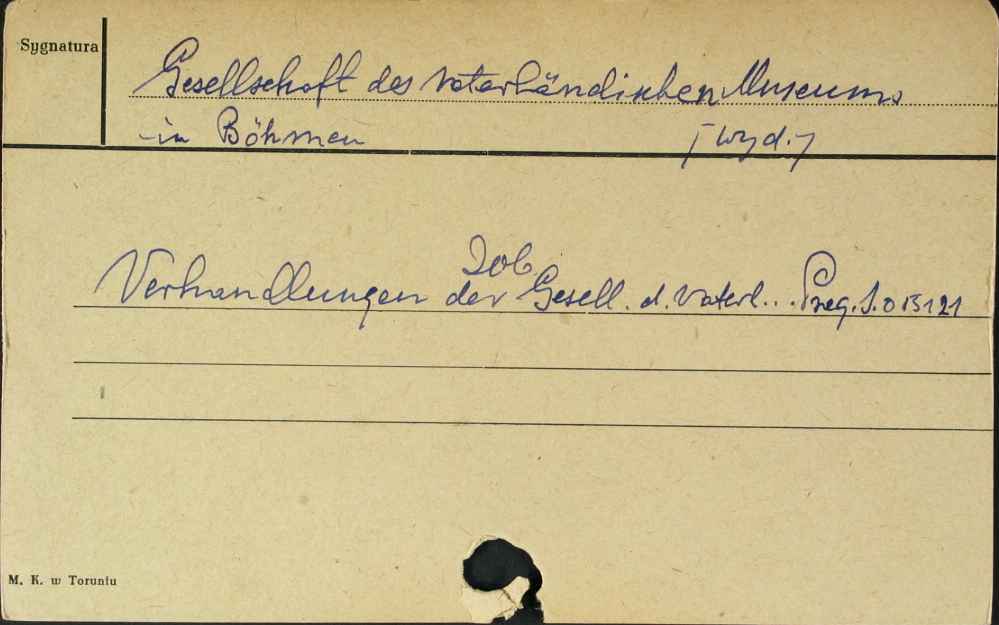 Sygnatura
Gesellschaft des vaterländischen Museums
in Böhmen [wyd.]
Zob.
Verhandlungen der Gesell. d. Vaterl... Prag. S. 013121
M. K. w Toruniu